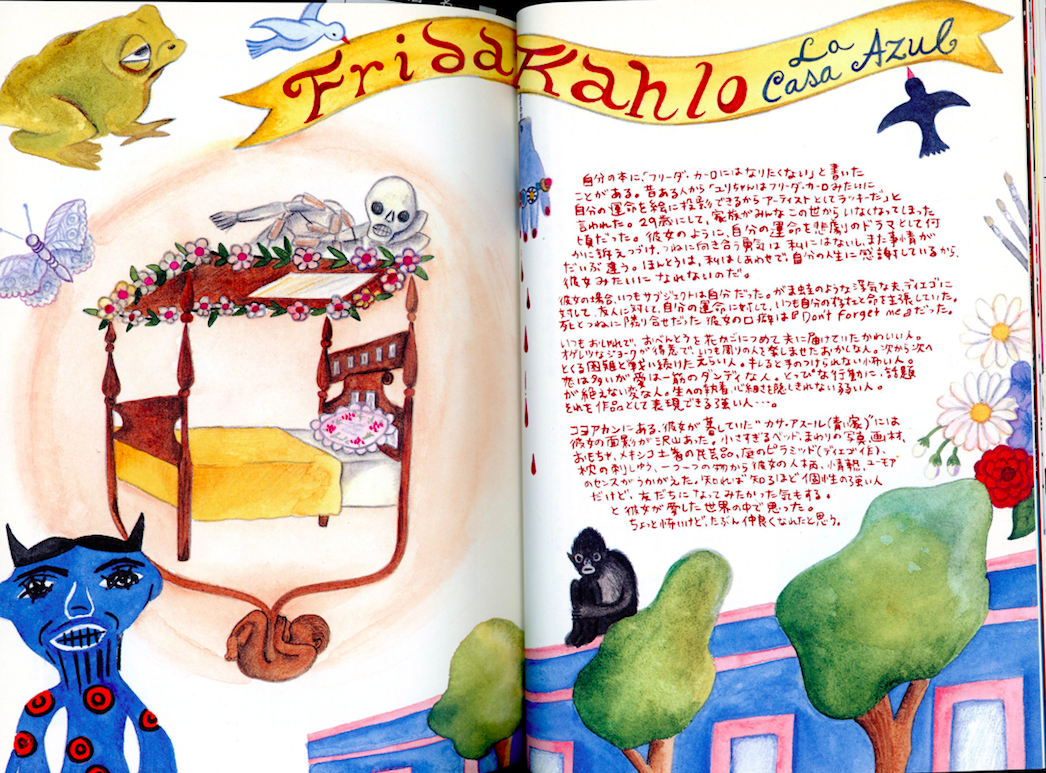 Frida Kahlo
La
Casa Azul
自分の本に、「フリーダ・カーロにはなりたくない」と書いた
ことがある。昔ある人から「ユリちゃんはフリーダ・カーロみたいに
自分の運命を絵に投影できるからアーティストとしてラッキーだ」と
言われた。29歳にして、家族がみんなこの世からいなくなってしまった
頃だった。彼女のように、自分の運命を悲劇のドラマとして何
かに訴えつづけ、つねに向き合う勇気は私にはないし、また事情が
だいぶ違う。ほんとうは、私はしあわせで、自分の人生に感謝しているから、
彼女みたいになれないのだ。
彼女の場合、いつもサブジェクトは自分だった。がま蛙のような浮気な夫、ディエゴに
対して、友人に対して、自分の運命に対して、いつも自分の存在を主張していた。
死とつねに隣り合せだった彼女の口癖は『Don't forget me』だった。
いつもおしゃれで、おべんとうを花かごにつめて夫に届けていたかわいい人。
オゲレツなジョークが得意で、いつも周りの人を楽しませたおかしな人。次から次へ
とくる困難と戦い続けたえらい人。キレると手のつけられない怖い人。
恋は多いが愛は一筋のダンディな人。とっぴな行動に、話題
が絶えない変な人。生への執着、心細さを隠しきれない弱い人。
それを作品として表現できる強い人…。
コヨアカンにある、彼女が暮していた"カサ・アスール(青い家)"には
彼女の面影が沢山あった。小さすぎるベッド、まわりの写真、画材、
おもちゃ、メキシコ土着の民芸品、庭のピラミッド(ディエゴ作)、
枕の刺しゅう、一つ一つの物から彼女の人柄、情報、ユーモア
のセンスがうかがえた。知れば知るほど個性の強い人
だけど、友だちになってみたかった気もする。
と彼女が愛した世界の中で思った。
ちょっと怖いけど、たぶん仲良くなれたと思う。